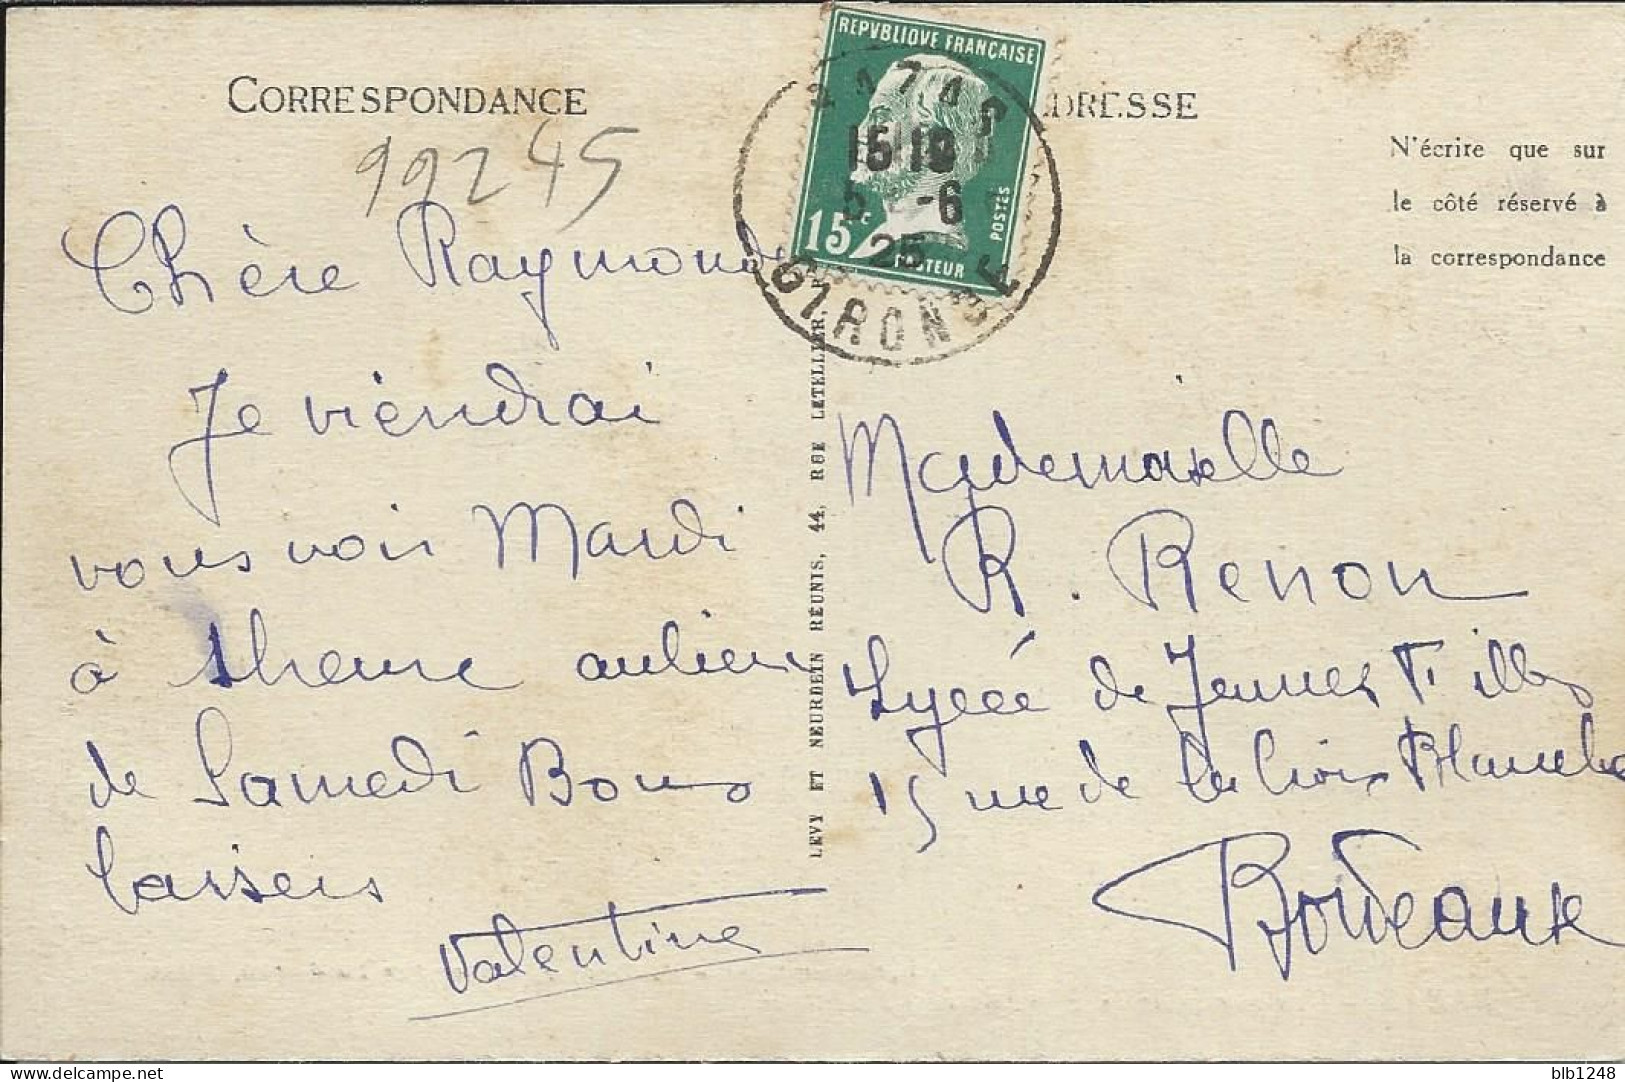 CORRESPONDANCE
99245
Chère Raymonde
Je viendrai
vous voir Mardi
à 1 heure au lieu
de Samedi Bons
baisers
Valentine
REPVBLIQVE FRANÇAISE
15c
POSTES
PASTEUR
15 10
5 -6
25
GIRONDE
LEVY ET NEURDEIN RÉUNIS, 44, RUE LETELLIER,
DRESSE
N'écrire que sur
le côté réservé à
la correspondance
Mademoiselle
R. Renon
Lycée de Jeunes Filles
15 rue de la Croix Blanche
Bordeaux
delcampe.net
blb1248